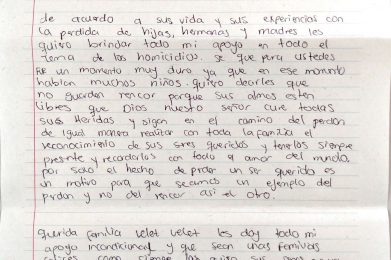 de acuerdo a sus vida y sus experiencias con
la perdida de hijas, hermanas y madres les
quiero brindar todo mi apoyo en todo el
tema de los homicidios. se que para ustedes
fue un momento muy duro ya que en ese momento
habian muchos niños. quiero decirles que
no guarden rencor porque sus almas esten
libres que Dios nuesto señor cure todas
sus Heridas y sigan en el camino del perdon
de igual manera realizar con toda la familia el
reconocimiento de sus seres queridos y tenerlos siempre
presente y recordarlos con todo el amor del mundo.
por solo el hecho de perder un ser querido es
un motivo para que seamos un ejemplo del
perdon y no del rencor asi el otro.
querida familia velet velet les doy todo mi
apoyo incondicional y que sean unas familias
como siempre los